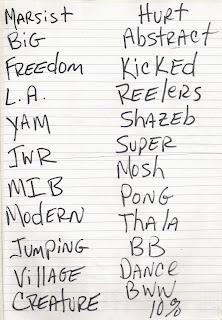 MARSIST
BiG
FREEDOM
L.A.
YAM
JWR
MIB
MODERN
JUMPING
ViLLAGE
CREATURE
HURT
AbstRAct
KicKED
REELERS
SHAZEB
SUPER
MOSH
PONG
ThALA
BB
DANCE
BWW
10%